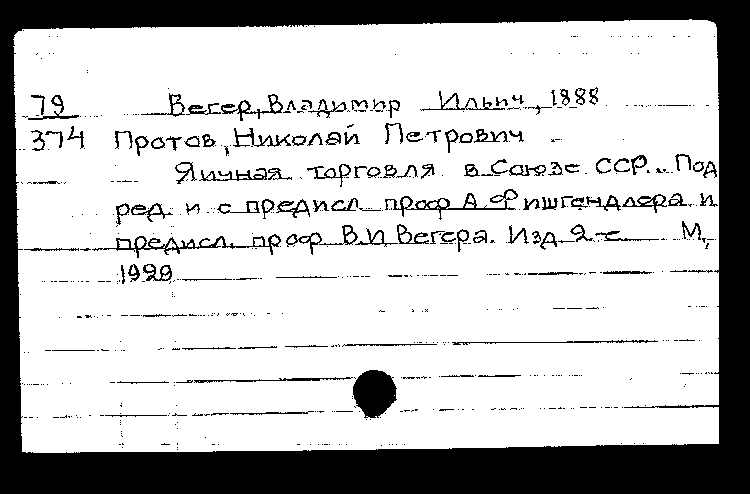 79 Вегер, Владимир Ильич, 1888
374 Протов, Николай Петрович
Яичная торговля в Союзе ССР.. Под
ред. и с предисл. проф А. Фишгендлера и
предисл. проф В.И Вегера. Изд 2-е М,
1929